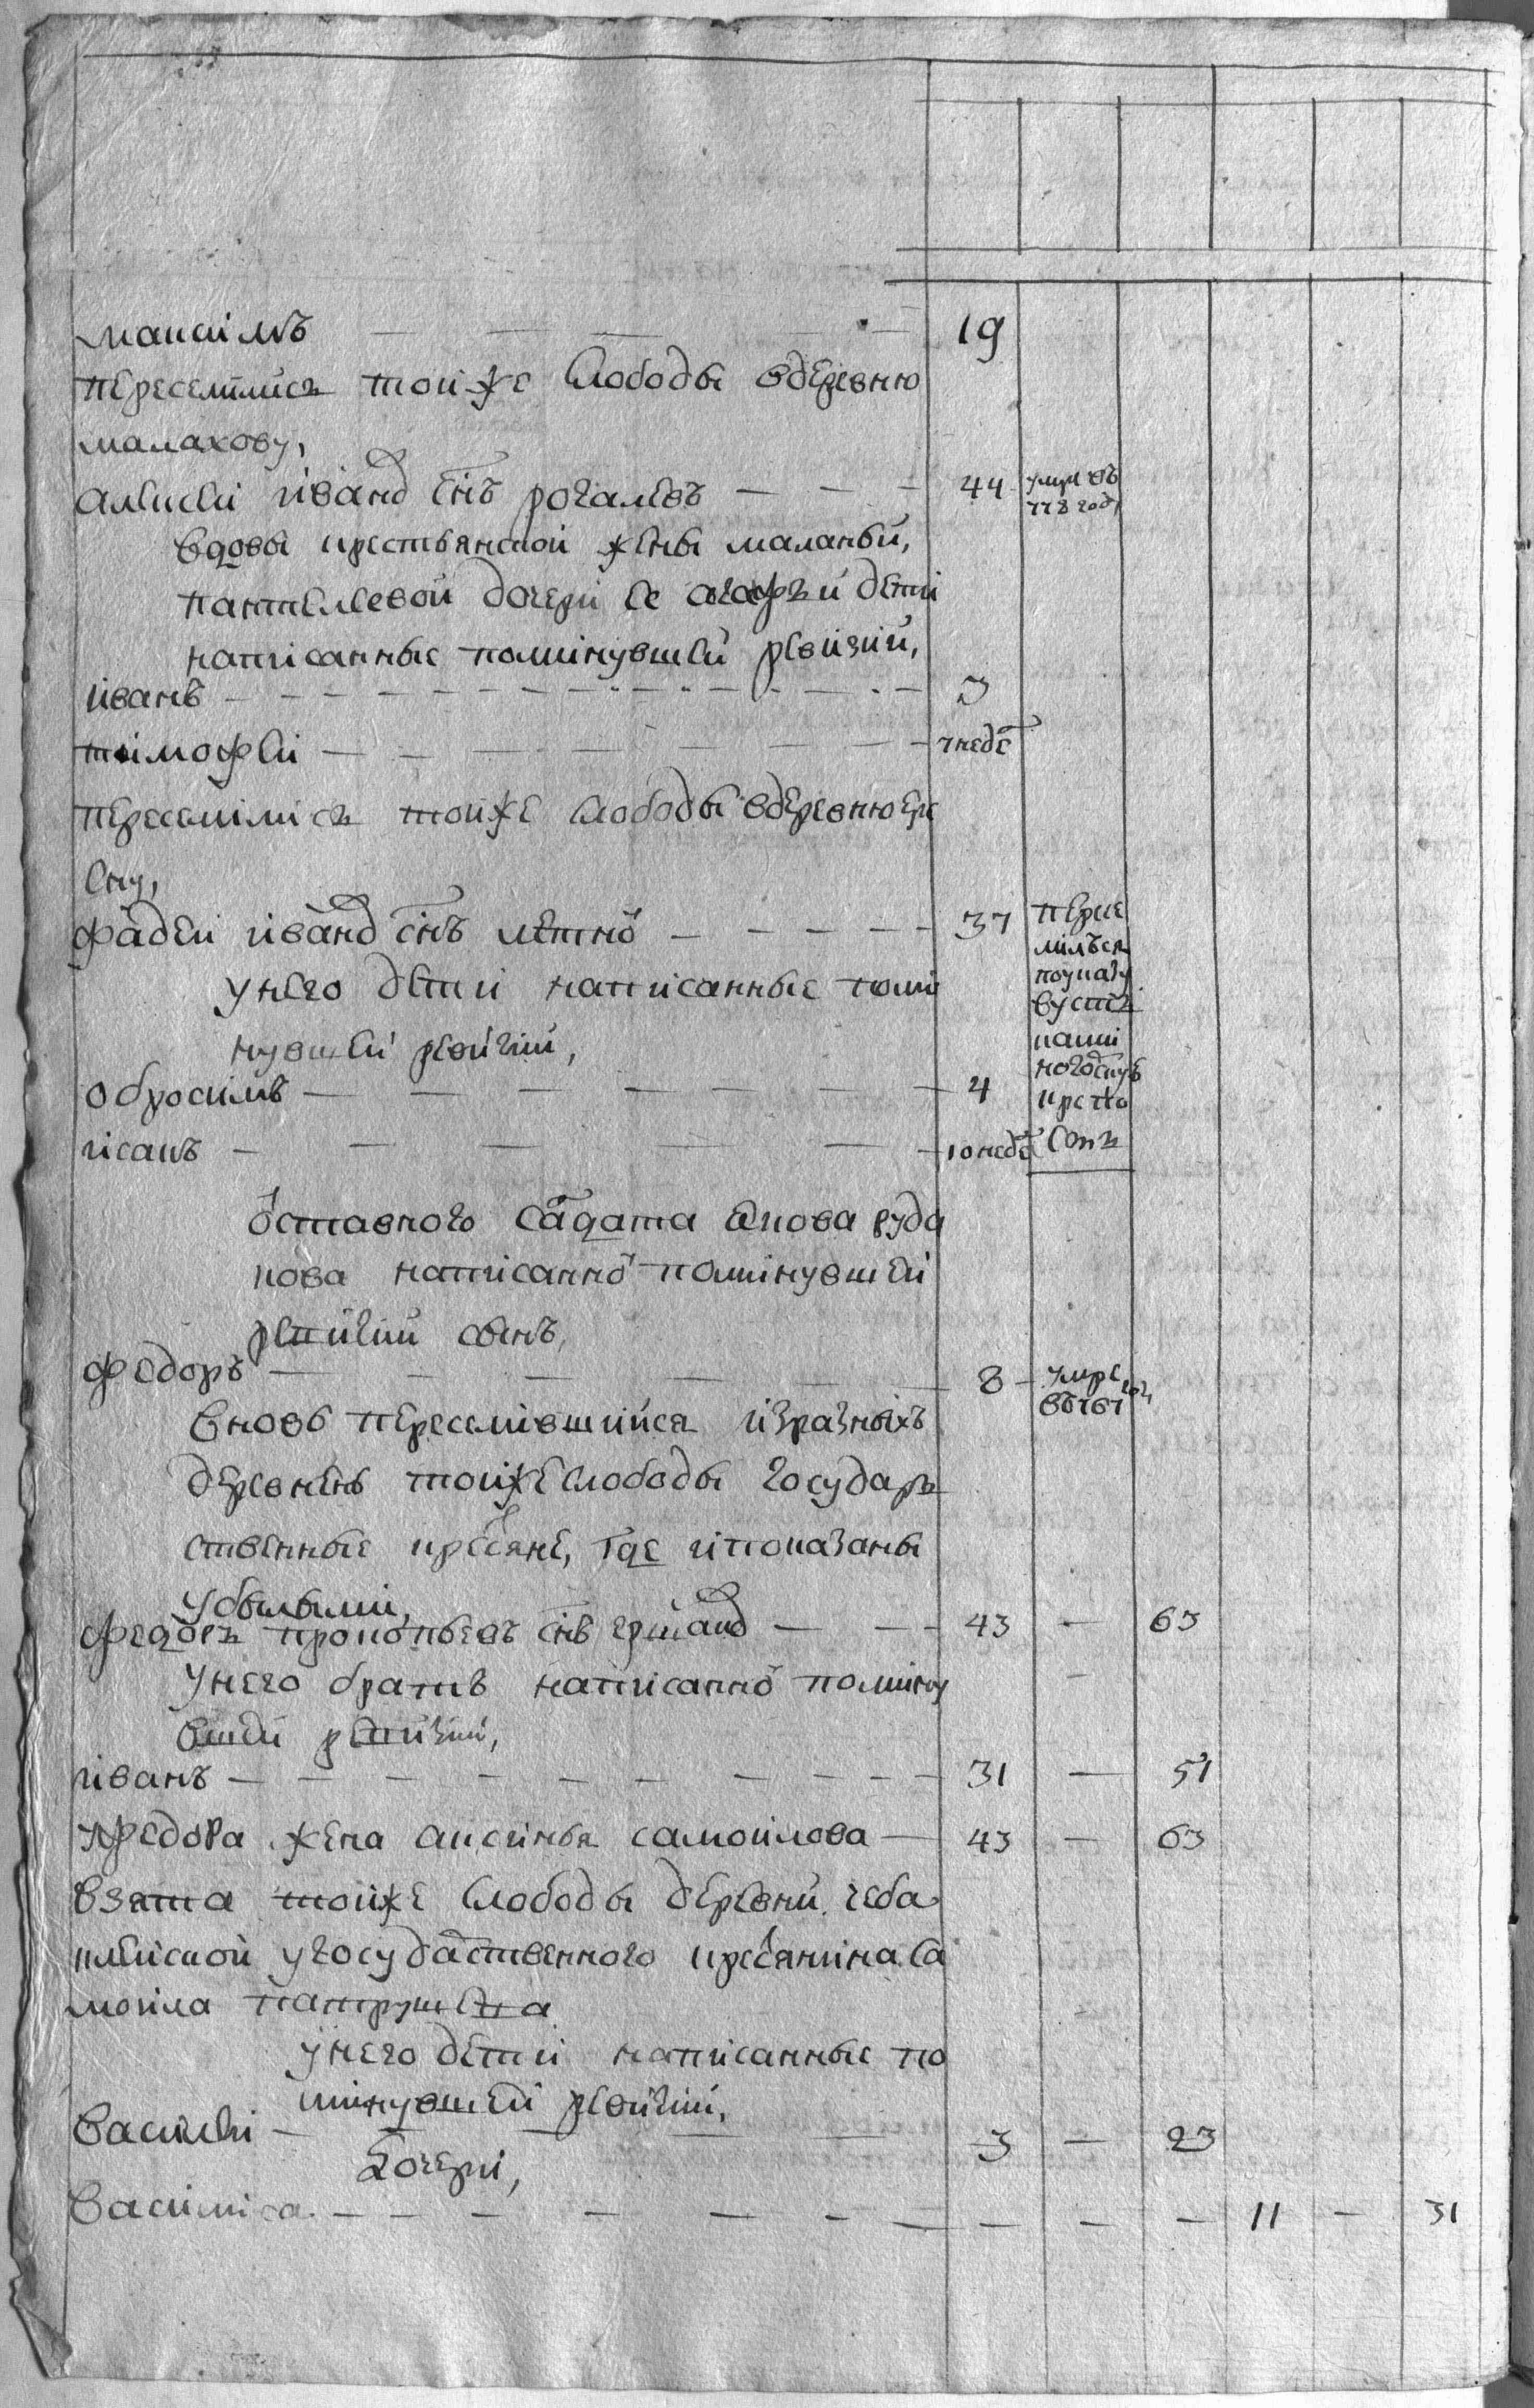 максимъ — — — — 19
переселились тойже слободы вдеревню
малахову,
алексеи иванов снъ рогалевъ — — — 44 умре въ
778 году
вдовы крестьянскои жены маланьи,
пантелеевои дочери ее дети
написанные поминувшеи ревизии,
иванъ — — — — 3
тимофеи — — — — 7 неде
переселились тойже слободы вдеревню
сну,
фадеи иванов снъ — — — — 37 пересе
лился
поуказу
написанные поми
унего дети написанные поми
нувшеи ревизии,
обросимъ — — — — 4
исакъ — — — — 10 неде
оставного салдата руда
кова написанно поминувшеи
ревизии сынъ,
федоръ — — — — 8 — умре
вновь переселившиися изразныхъ
деревень тойже слободы государь
ственные кресяне, где ипоказаны
убылыми,
федоръ прокопьевъ снъ — — — 43 — 63
унего братъ написанно помину
вшеи ревизии,
иванъ — — — — 31 — 51
уфедора жена аксинья самоилова — 43 — 63
взята тойже слободы деревни чеба
клеискои угосударственного кресянина са
моила патрушева
унего дети написанные по
минувшеи ревизии,
василеи — — — — 3 — 23
дочери,
василиса — — — — — — — 11 — 31